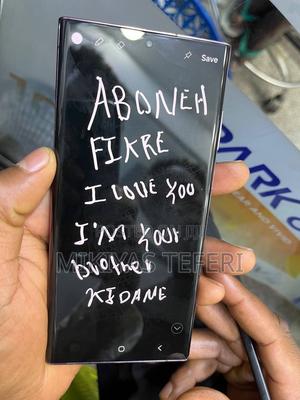 Save
ABONEH
FIKRE
I LOVE YOU
I'M YOUR
brother
KIDANE
MIKIYAS TEFERI